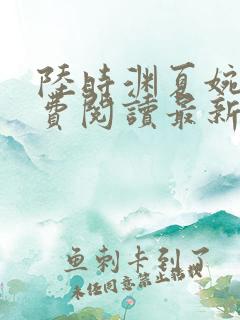 陸時渊夏婉
費閱讀最新
鱼刺卡到了
未经同意禁止转载